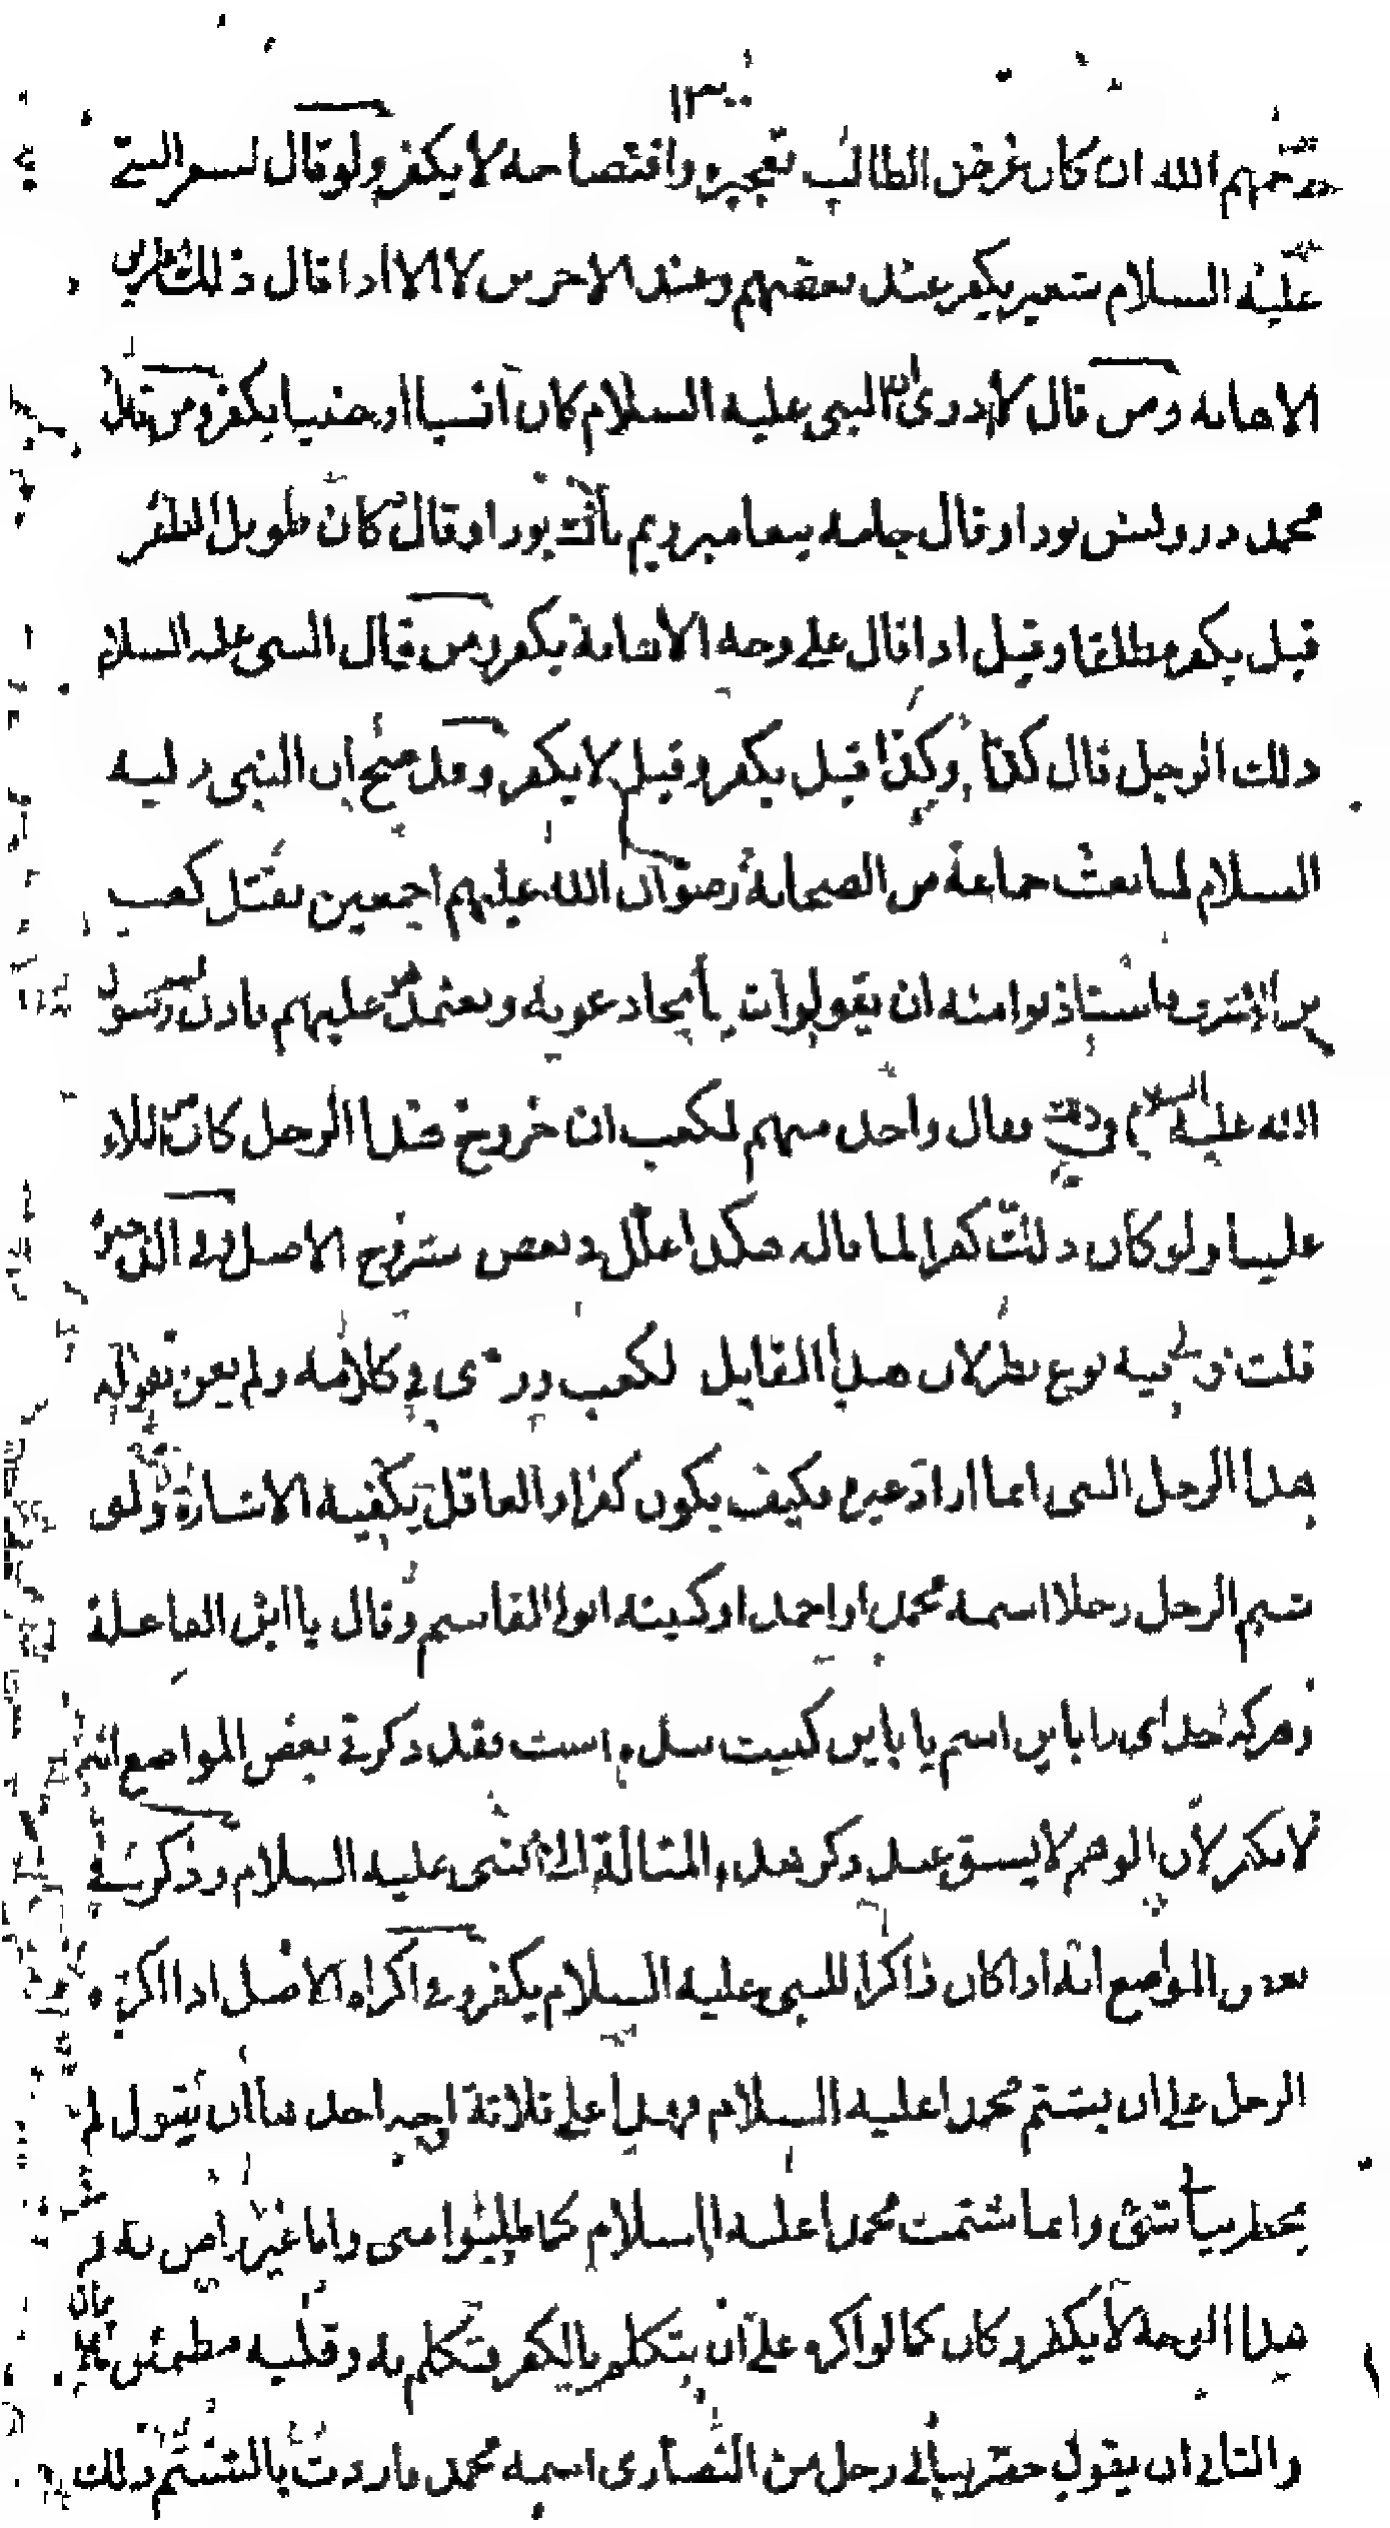 ١٣٠٠
رحمهم الله ان كان غرض الطالب تعجيزه وافتضاحه لا يكفر ولو قال لشعر النبي
عليه السلام شعير يكفر عند بعضهم وعند الاخرين لا الا اذا قال ذلك بطريق
الاهانه ومن قال لا ادرى ان النبي عليه السلام كان انسيا او جنيا يكفر ومن قال
محمد درويش بود او قال جامه پيغامبر ريم ناك بود او قال كان طويل الظفر
قيل يكفر مطلقا وقيل اذا قال على وجه الاهانة يكفر ومن قال للنبي عليه السلام
ذلك الرجل قال كذا وكذا قيل يكفر وقيل لا يكفر وقد صح ان النبي عليه
السلام لما بعث جماعة من الصحابة رضوان الله عليهم اجمعين بقتل كعب
بن الاشرف فاستاذنوا منه ان يقولوا
اذنه عليه السلام وقت فقال واحد منهم لكعب ان خروج هذا الرجل كان من البلاء
علينا ولو كان ذلك كفرا لما قاله هكذا علل في بعض شروح الاصل وفى الذخيرة
قلت وفيه نوع نظر لان هذا القايل لكعب ورى في كلامه ولم يعن بقوله
هذا الرجل النبي انما اراد غيره فكيف يكون كفرا والعاقل يكفيه الاشارة ولو
شتم الرجل رجلا اسمه محمد او احمد او كنيته ابو القاسم وقال يا ابن الفاعلة
وهركه خداى را باين اسم يا باين كنيت بنده است فقد ذكر في بعض المواضع انه
لا يكفر لان الوهم لا يسبق عند ذكر هذه المقالة الى النبي عليه السلام وذكر في
بعض المواضع انه اذا كان ذاكرا للنبي عليه السلام يكفر وفى اكراه الاصل اذا اكره
الرجل على ان يشتم محمدا عليه السلام فهذا على ثلاثة اوجه احدها ان يقول لم
يخطر ببالي شئ وانما شتمت محمدا عليه السلام كما طلبوا منى وانا غير راض به ففى
هذا الوجه لا يكفر وكان كما لو اكره على ان يتكلم بالكفر فتكلم به وقلبه مطمئن بالايمان
والثاني ان يقول خطر ببالي رجل من النصارى اسمه محمد فاردت بالشتم ذلك